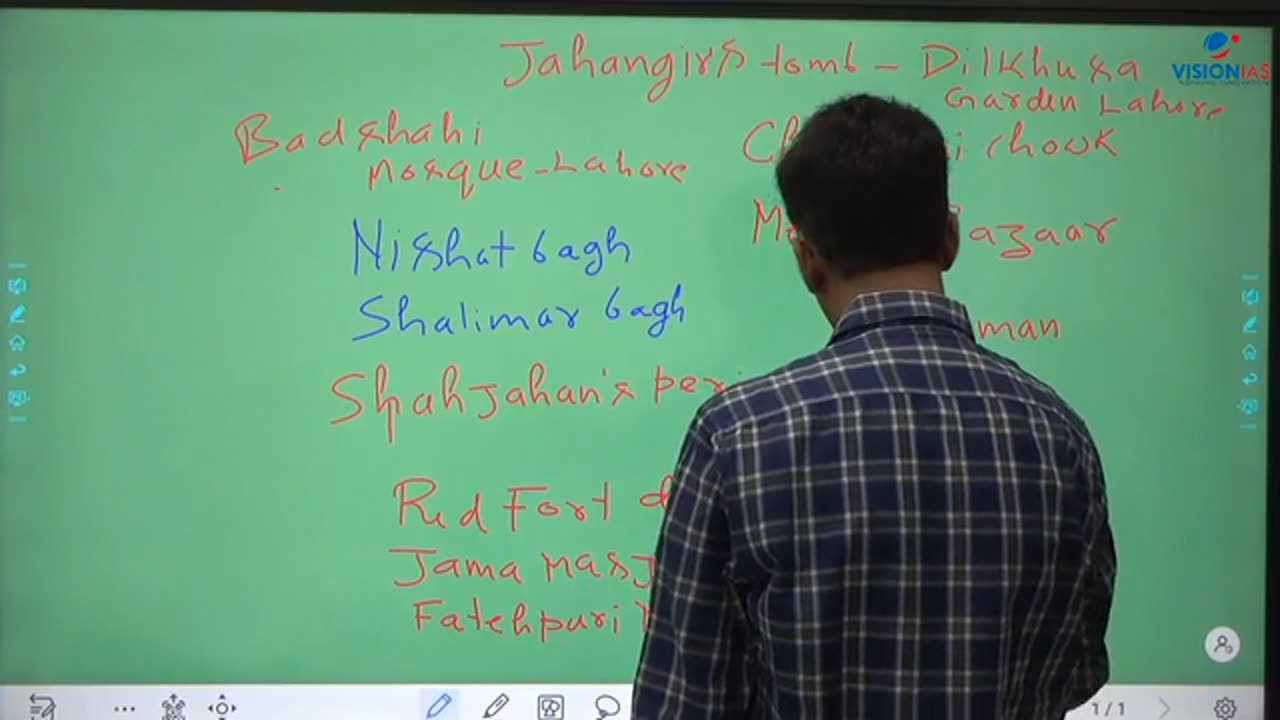 Jahangir's tomb - Dilkhusa
Garden Lahore
VISIONIAS
Badshahi
Mosque - Lahore
chowk
Nishat bagh
Shalimar bagh
Shah Jahan's
Red Fort
Jama
Fatehpuri
1/1